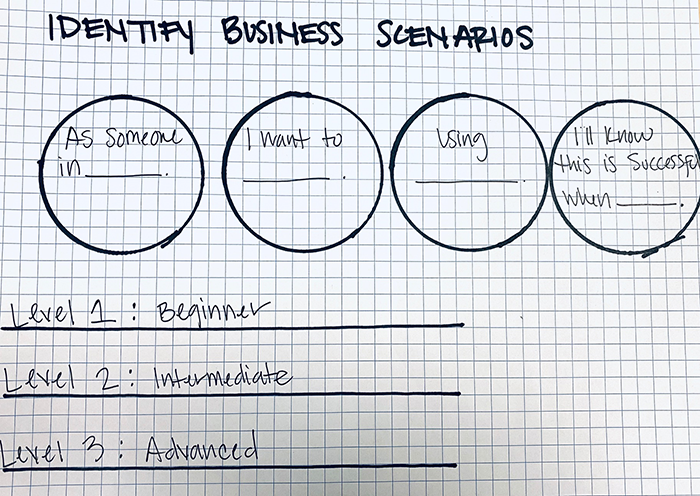 IDENTIFY BUSINESS SCENARIOS
As Someone
in ______.
I want to
______.
Using
______.
I'll Know
this is Successful
when ______.
Level 1: Beginner
Level 2: Intermediate
Level 3: Advanced